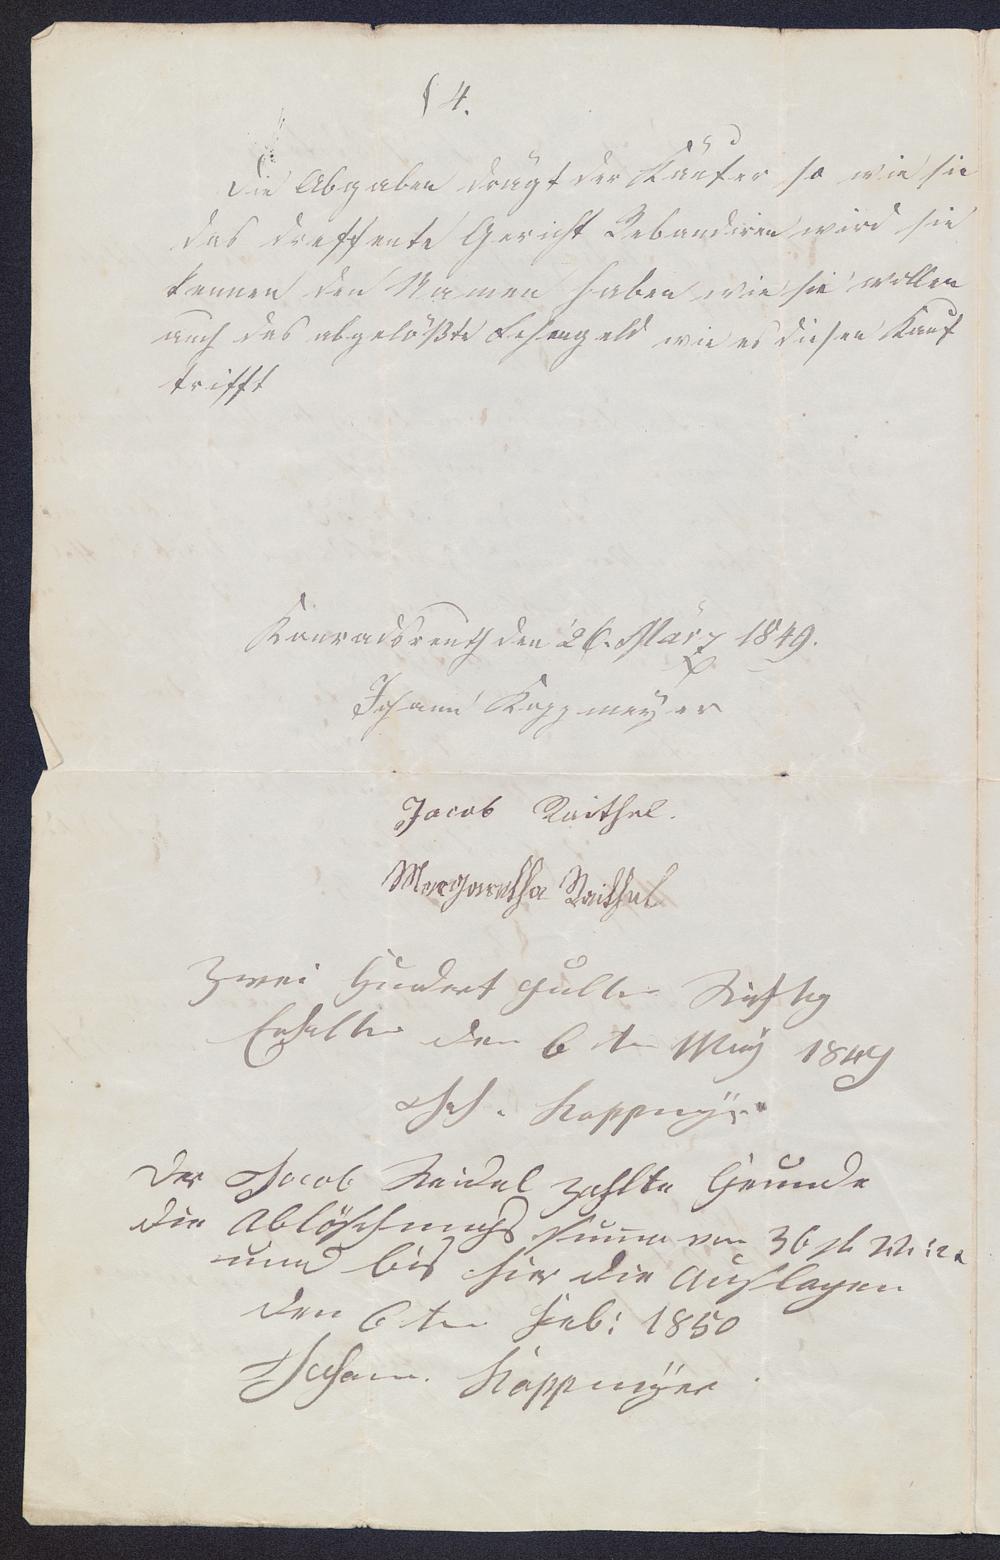 § 4.
Die Abgaben drägt der Käufer so wie sie
das dreffente Gericht Rebandiren wird sie
kennen den Namen haben wie sie wollen
auch das abgelößte Lehengeld wie es diesen Kauf
trifft
Konradsreuth den 26. März 1849.
Johann Koppmeyer
Jacob Raithel.
Margaretha Raithel
Zwei Hundert Gulten Richtig
Erhalten den 6 ten May 1849
Joh. Koppmeyer
Der Jacob Reidel zahlte Heunde
die Ablöschungs Suma von 36 fl
und bis hier die Auslagen
den 6 ten Feb: 1850
Johann. Koppmeyer